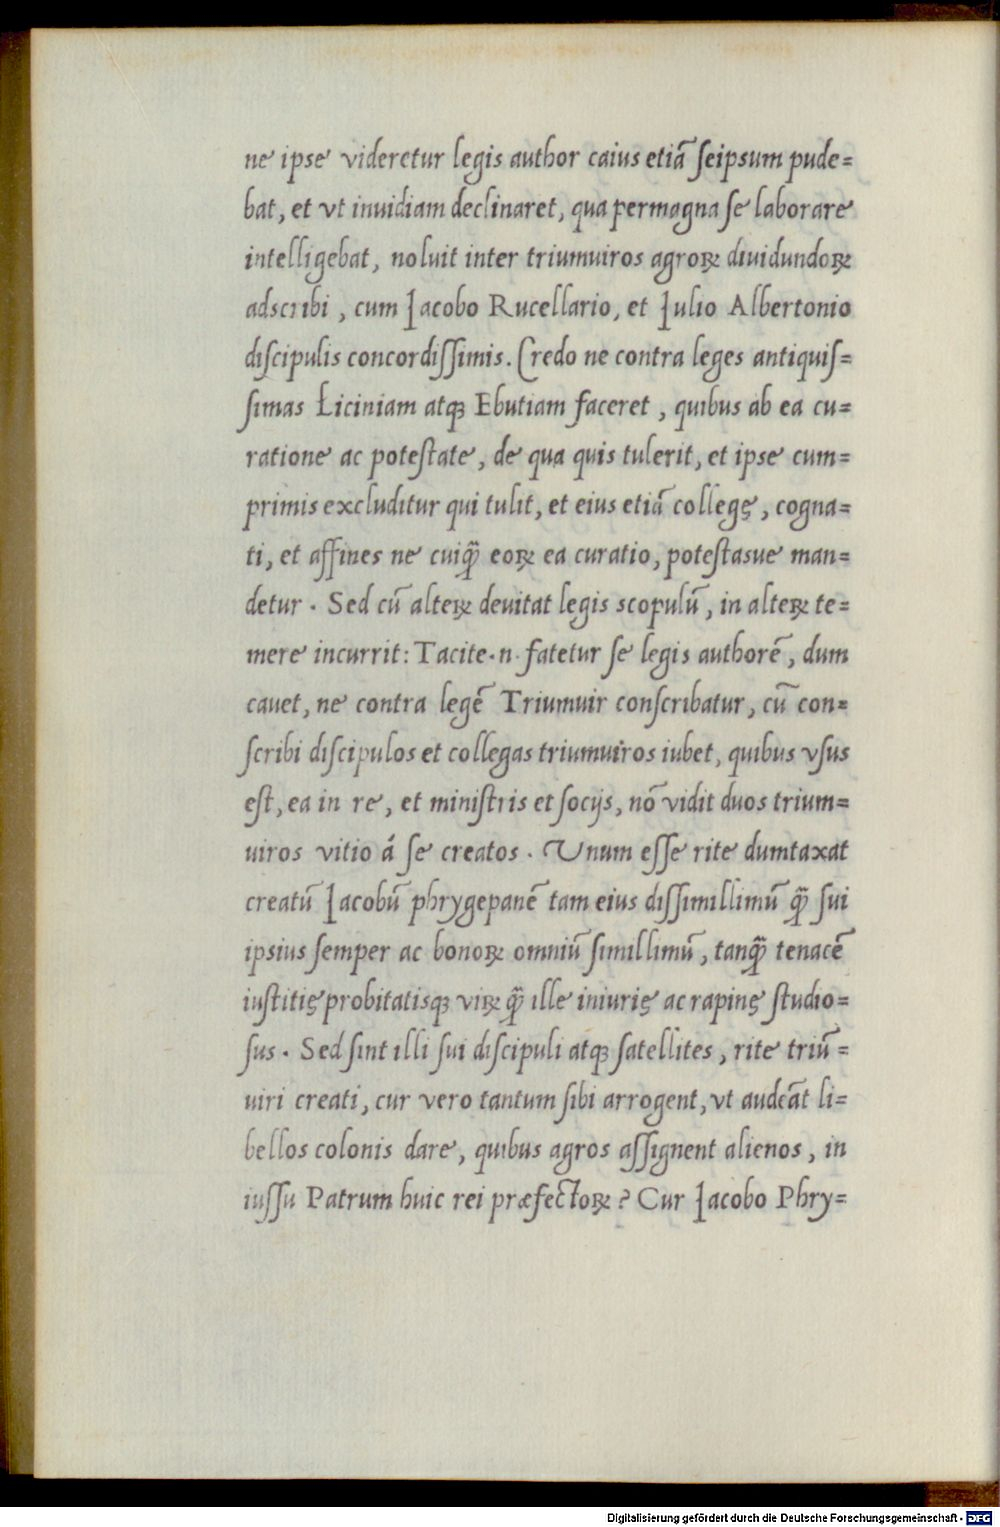 ne ipse videretur legis author caius etiā ſeipsum pude=
bat, et vt inuidiam declinaret, qua permagna ſe laborare
intelligebat, noluit inter triumuiros agroꝝ diuidundoꝝ
adscribi, cum Jacobo Rucellario, et Julio Albertonio
diſcipulis concordiſſimis. Credo ne contra leges antiquiſ=
ſimas Liciniam atqꝫ Ebutiam faceret, quibus ab ea cu=
ratione ac poteſtate, de qua quis tulerit, et ipse cum=
primis excluditur qui tulit, et eius etiā collegę, cogna=
ti, et affines ne cuiq̃ eoꝝ ea curatio, poteſtasue man=
detur. Sed cū alteꝝ deuitat legis scopulū, in alteꝝ te=
mere incurrit: Tacite.n. fatetur ſe legis authorē, dum
cauet, ne contra legē Triumuir conſcribatur, cū con=
ſcribi diſcipulos et collegas triumuiros iubet, quibus vſus
eſt, ea in re, et miniſtris et ſocijs, nō vidit duos trium=
uiros vitio á ſe creatos. Unum eſſe rite dumtaxat
creatū Jacobū phrygepanē tam eius diſſimillimū q̃ ſui
ipsius ſemper ac bonoꝝ omniū ſimillimū, tanq̃ tenacē
iuſtitię probitatisqꝫ viꝝ q̃ ille iniurię ac rapinę ſtudio=
ſus. Sed ſint illi ſui diſcipuli atqꝫ ſatellites, rite triū=
uiri creati, cur vero tantum ſibi arrogent, vt audeāt li=
bellos colonis dare, quibus agros aſſignent alienos, in
iuſſu Patrum huic rei præfectoꝝ? Cur Jacobo Phry=
Digitalisierung gefördert durch die Deutsche Forschungsgemeinschaft - DFG